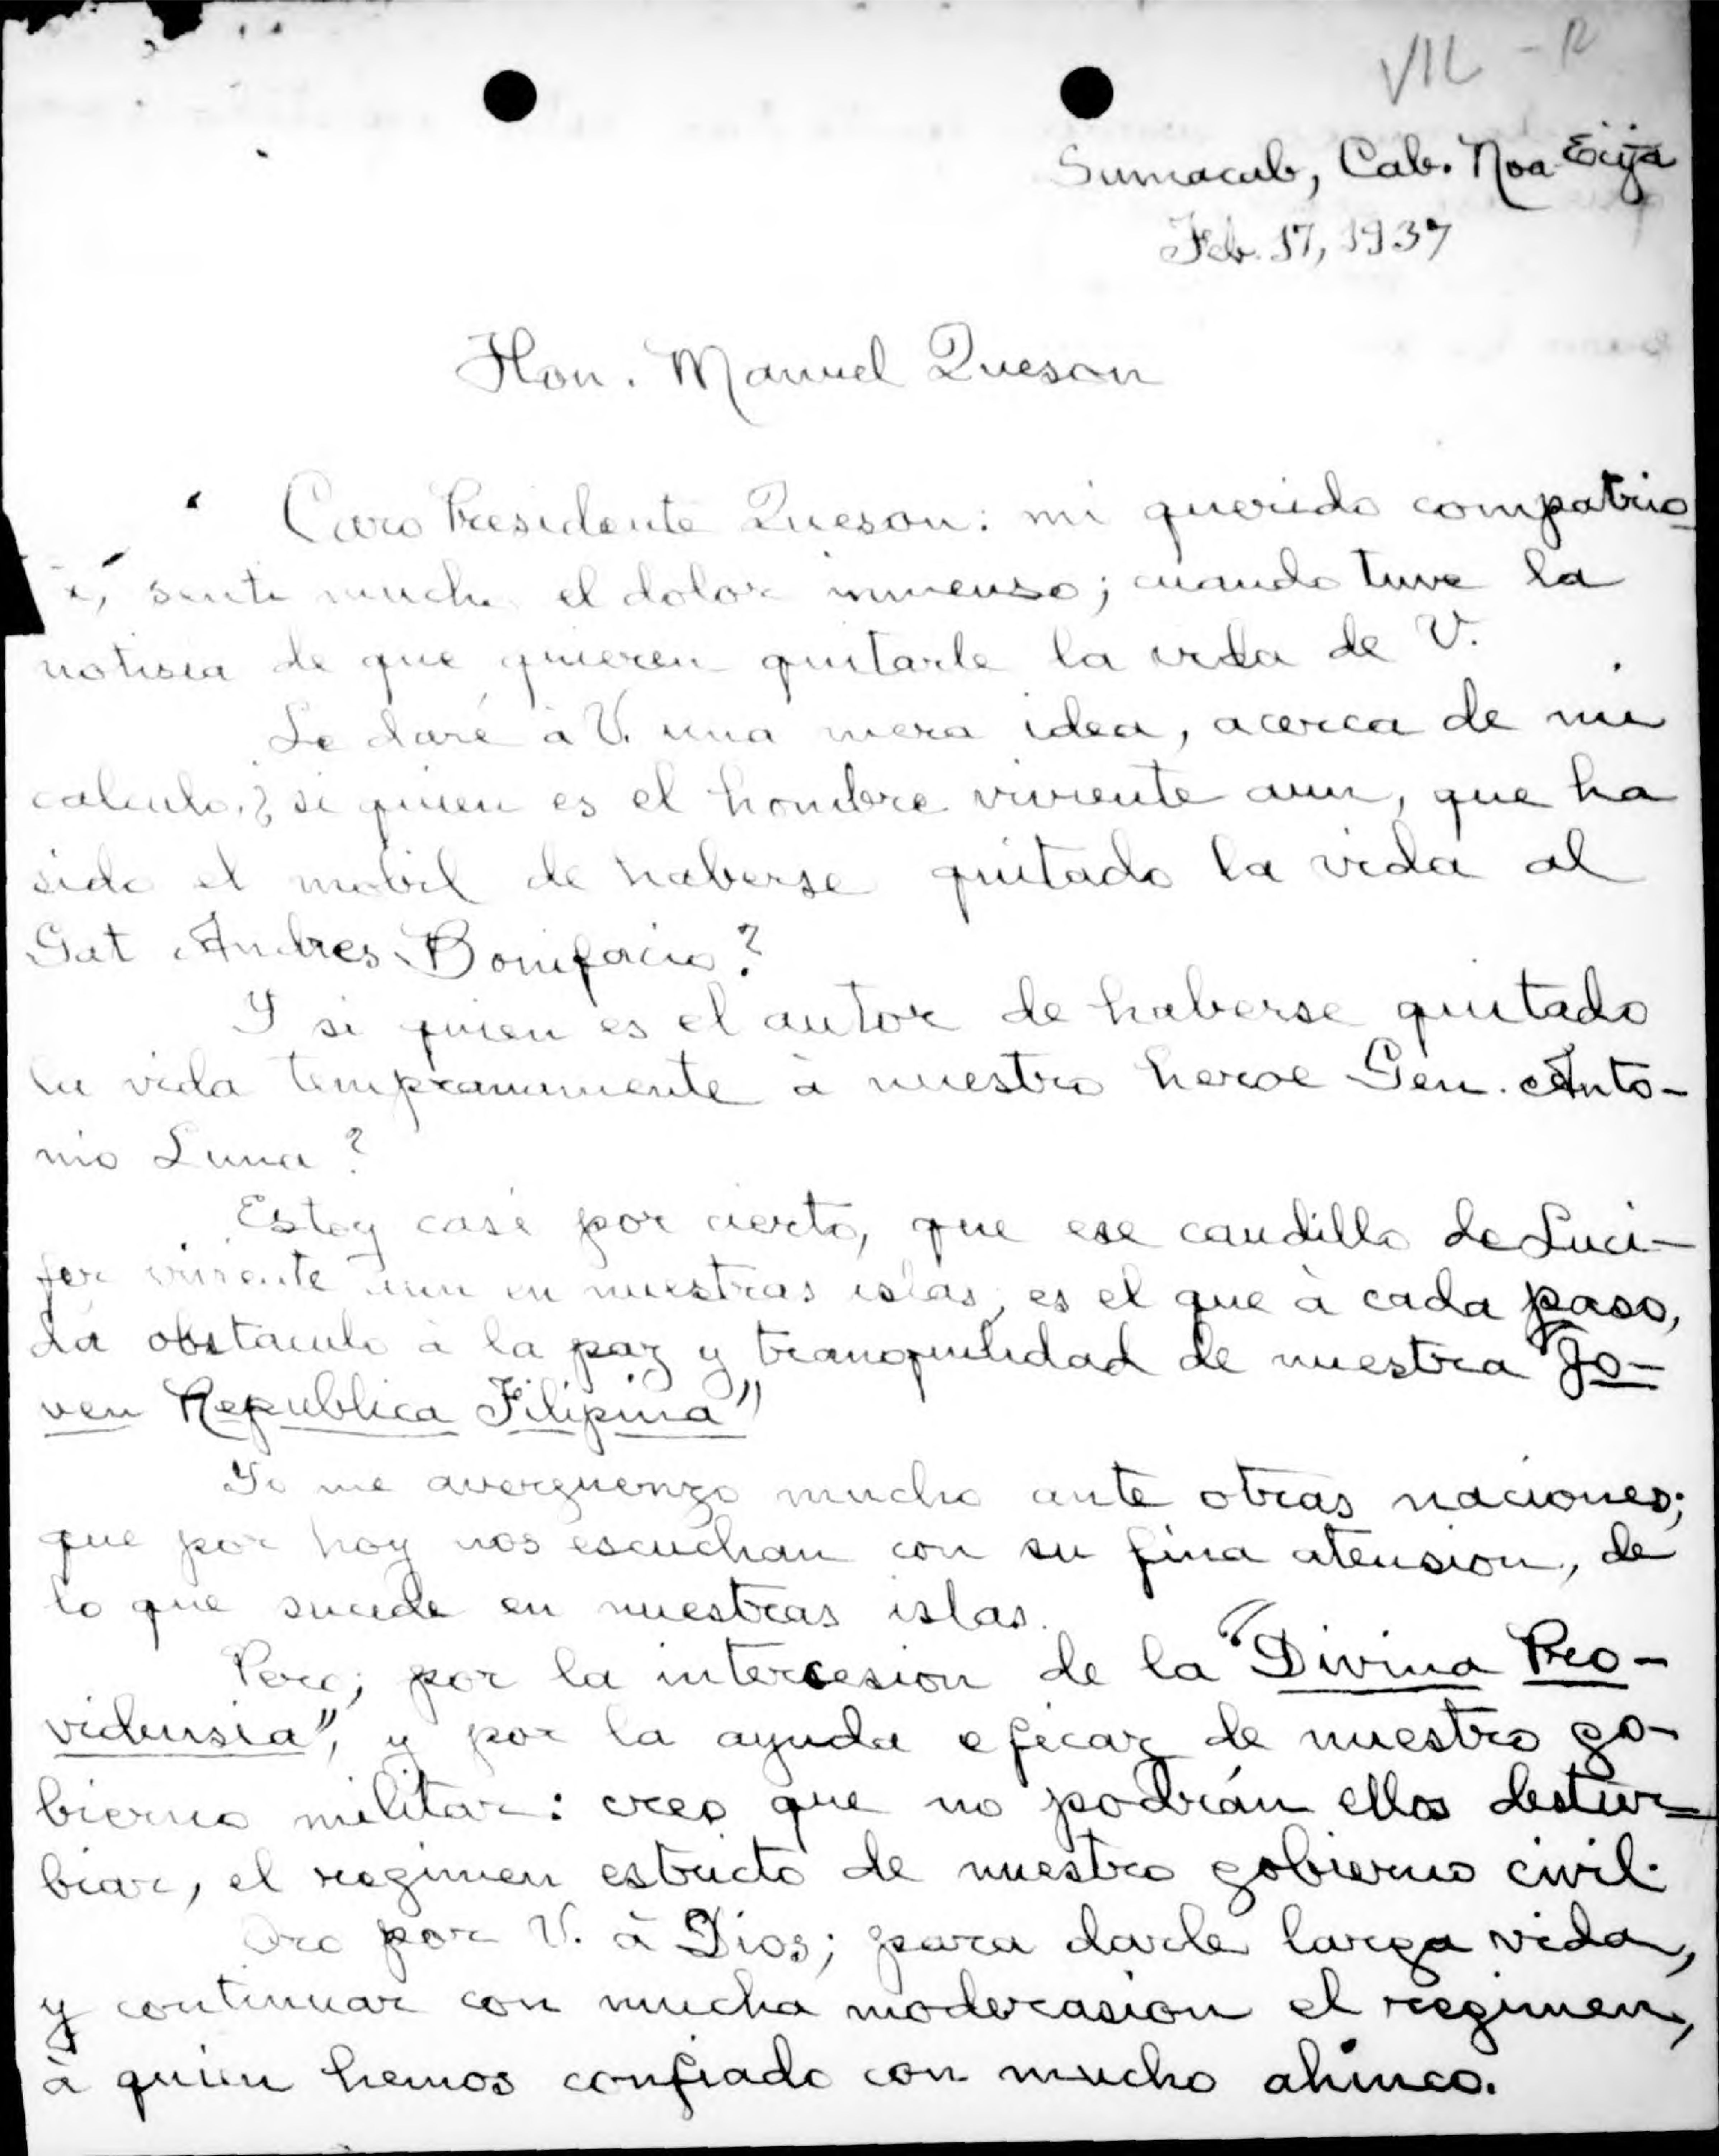 VII - R
Sumacab, Cab. Nva Ecija
Feb. 17, 1937
Hon. Manuel Queson
Caro Presidente Queson: mi querido compatrio
sentí mucho el dolor inmenso; cuando tuve la
notisia de que quieren quitarle la vida de V.
Le daré à V. una mera idea, acerca de mi
calculo. ¿ si quien es el hombre viviente aun, que ha
sido el mobil de haberse quitado la vida al
Gat Andres Bonifacio?
Y si quien es el autor de haberse quitado
la vida tempranamente à nuestro heroe Gen. Anto-
nio Luna?
Estoy casi por cierto, que ese caudillo de Luci-
fer viviente aun en nuestras islas, es el que à cada paso,
da obstaculo à la paz y tranquilidad de nuestra "Jo-
ven Republica Filipina"
Yo me averguenzo mucho ante otras naciones;
que por hoy nos escuchan con su fina atension, de
lo que sucede en nuestras islas.
Pero; por la intercesion de la "Divina Pro-
vidensia", y por la ayuda eficaz de nuestro go-
bierno militar: creo que no podrán ellos destur-
biar, el regimen estricto de nuestro gobierno civil.
Oro por V. à Dios; para darle larga vida,
y continuar con mucha moderasion el regimen,
à quien hemos confiado con mucho ahinco.